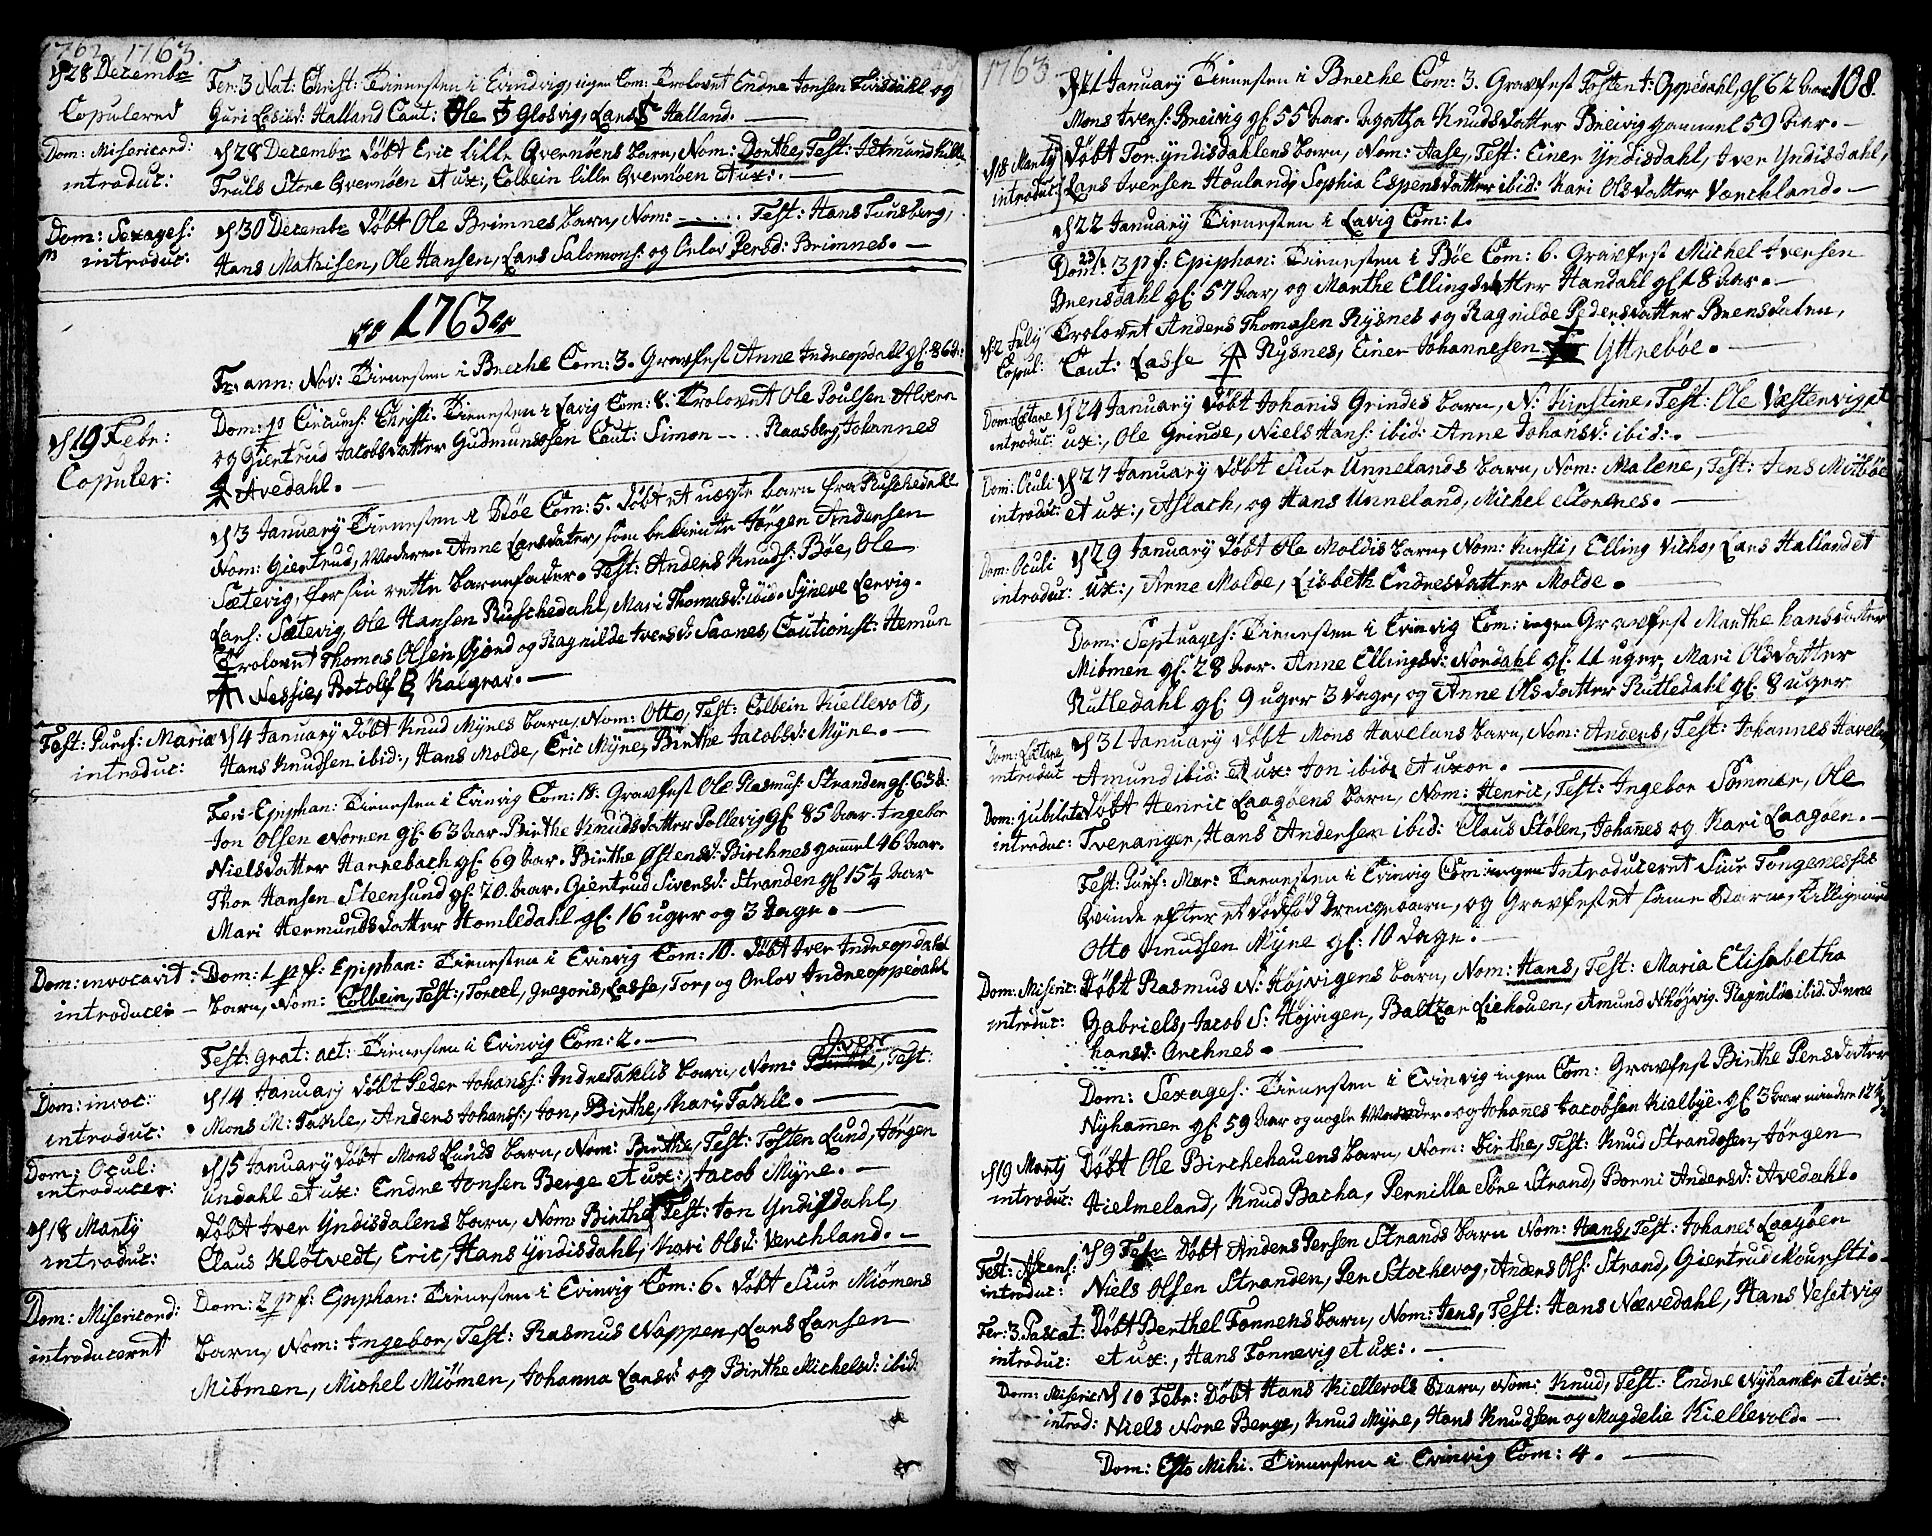 1762. 1763.
d 28 Decembr Fer: 3 Nat: Christ: Tienesten i Evindvig, ingen Com: Trolovet Endre Jonsen Furisdahl og
Copulered Guri Lasisd: Halland Caut: Ole Glosvig, Lars Halland.
Dom: Misericord: d 28 Decembr døbt Eric lille Qvernøens barn, Nom: Dorthe, Test: Jetmund lille
introduc: Truls Store Qvernøen et ux:, Colbein lille Qvernøen et ux:.
Dom: Sexages: d 30 Decembr døbt Ole Brimnes barn, Nom: ..... Test: Hans Tunsberg,
introduc: Hans Mathisen, Ole Hansen, Lars Salomons: og Orlov Persd: Brimnes.
1763
Fr: ann: Nov: Tienesten i Breche Com: 3. Gravfest Anne Indreopdall gl: 86
d 19 Febr: Dom: p Circums: Christi: Tienesten i Lavig Com: 8. Trolovet Ole Poulsen Alvern
Copuler: og Giertrud Jacobsdatter Gudmundsøen Caut: Simon .... Raasberg Johannes
Avedahl.
d 3 January Tienesten i Bøe Com: 5. døbt et uægte barn fra Ruschedahl
Nom: Giertrud, Moderen Anne Larsdater, som bekiente Jørgen Andersen
Sætevig, for sin rette barnefader. Test: Anders Knuds: Bøe, Ole
Lars: Sætevig, Ole Hansen Ruschedahl, Mari Thomasd: ibid. Syneve Lervig.
Trolovet Thomas Olsen Giord og Ragnilde Iversd: Saanes, Cautionist: Hemun
Nessie, Botolf Kalgrav.
Fest: Purif: Maria d 4 January døbt Knud Mÿnes barn, Nom: Otto, Test: Colbein Kiellevold,
introduc: Hans Knudsen ibid:, Hans Molde, Eric Mÿne, Birthe Jacobsd: Mÿne.
Fer: Epiphan: Tienesten i Evinvig Com: 18. Gravfest Ole Rasmus: Stranden gl: 63
Jon Olsen Nornen gl: 63 Aar. Birthe Knudsdatter Pollevig gl: 85 Aar. Ingebor
Nielsdatter Hannebach gl: 69 Aar. Birthe Østensd: Birchnes gamel 46 Aar.
Thor Hansen Steensund gl: 20. Aar. Giertrud Siversd: Stranden gl: 15¼ Aar
Mari Hermundsdatter Homledahl gl: 16 uger og 3 Dage.
Dom: invocavit: Dom: 1 p f: Epiphan: Tienesten i Evinvig Com: 10. døbt Iver Indreopdahl
introducer barn, Nom: Colbein, Test: Torcel, Gregoris, Lasse, Tor, og Orlov Indreoppedahl
Fest: grat: act: Tienesten i Evinvig Com: 2.
Iver
Dom: invoc: d 14 January døbt Peder Johanss: Indre Taklis barn, Nom: Birthe, Test:
introduc: Mons M: Takle, Anders Johanss:, Jon, Birthe, Kari Takle.
Dom: Ocul: d 15 January døbt Mons Lunds barn, Nom: Birthe, Test: Tosten Lund, Jørgen
introducer: undahl et ux: Endre Jonsen Berge et ux:, Jacob Mÿne.
d 18 Marty døbt Iver Yndisdalens barn, Nom: Birthe Test: Jon Yndisdahl,
introduc: Claus Klotvedt, Eric, Hans Yndisdahl, Kari Olsd: Verchland.
Dom: Misericord: Dom: 2 p f: Epiphan: Tienesten i Evinvig Com: 6. døbt Siur Miömens
introduceret barn, Nom: Ingebor, Test: Rasmus Nappen, Lars Larsen
Miömen, Michel Miömen, Johanna Larsd: og Birthe Michelsd: ibid:
1763 108.
d 21 January Tienesten i Breche Com: 3. Gravfest Tosten I: Oppedahl, gl 62 Aar
Mons Ivers: Breivig gl: 55 Aar. Agatha Knudsdatter Breivig gammel 59 Aar.
d 18 Marty Døbt Tor Yndisdahlens barn, Nom: Aase, Test: Einer Yndisdahl, Iver Yndisdahl,
introduc: Lars Iversen Houland, Sophia Espensdatter ibid: Kari Olsdatter Værchland.
d 22 January Tienesten i Lavig Com: 1.
Dom: 3 p f: Epiphan: Tienesten i Bøe Com: 6. Gravfest Michel Iversen
Brensdahl gl: 57 Aar, og Marthe Ellingsdatter Handahl gl 18 Aar.
d 2 July Trolovet Anders Thomasen Rysnes og Ragnilde Pedersdatter Brensdalen,
Copul: Caut: Lasse Rysnes, Einer Johannesen Ytterbøe.
Dom: Lætare d 24 January døbt Johanis Grindes barn, N: Kirstine, Test: Ole Væstervig et
introduc: ux:, Ole Grinde, Niels Hans: ibid: Anne Johansd: ibid:.
Dom: Oculi d 27 January døbt Siur Unnelands barn, Nom: Malene, Test: Jens Mitbøe
introduc: et ux:, Aslach, og Hans Unneland, Michel Storenes.
Dom: Oculi d 29 January Døbt Ole Moldis barn, Nom: Kirsti, Elling Vicho, Lars Halland et
introduc: ux:, Anne Molde, Lisbeth Endresdatter Molde.
Dom: Septuages: Tienesten i Evinvig Com: ingen Gravfest Marthe hansdatter
Miömen gl: 28 Aar. Anne Ellingsd: Nordahl gl: 11 uger, Mari Olsdatter
Rutledahl gl: 9 uger 3 dage, og Anne Olsdatter Rutledahl gl: 8 uger
Dom: Lætare d 31 January døbt Mons Havelans barn, Nom: Anders, Test: Johannes Havelan
introduc Amund ibid: et ux: Jon ibid: et uxor.
Dom: jubilate Døbt Henric Laagøens barn, Nom: Henric, Test: Ingebor Sommer, Ole
introduc: Tveranger, Hans Andersen ibid: Claus Stølen, Johanes og Kari Laagøen.
Fest: Purif: Mar: Tienesten i Evinvig Com: ingen Introduceret Siur Tongenesses
Qvinde efter et dødfød drengebarn, og Gravfestet same barn, tilligemed
Otto Knudsen Mÿne gl: 10 dage.
Dom: Miseric: Døbt Rasmus N: Höjvigens barn, Nom: Hans, Test: Maria Elisabetha
introduc: Gabriels, Jacob S: Höjvigen, Baltzar Eiehouen, Amund N höjvig. Ragnilde ibid. Anne
hansd: Archnes.
Dom: Sexages: Tienesten i Evinvig ingen Com: Gravfest Birthe Persdater
Nÿhamer gl: 59 Aar og nogle Maaneder. og Johanes Jacobsen Kialbye. gl: 3 Aar minder 12
d 19 Marty Døbt Ole Birchehauens barn, Nom: Birthe, Test: Knud Strandosen, Jørgen
introduc: Hielmeland, Knud Bacha, Pernilla Søre Strand, Borni Andersd: Avedahl.
Fest: Ascens: d 9 Febr Døbt Anders Persen Strands barn Nom: Hans, Test: Johanes Laagøen
introduc: Niels Olsen Stranden, Per Stochevog, Anders Ols: Strand, Giertrud Moursti.
Fer: 3. Pascat: Døbt Berthel Fonnens barn, Nom: Jens, Test: Hans Nævedahl, Hans Vesetvig
introduc: et ux:, Hans Fonnevig et ux:.
Dom: Miseric: d 10 Febr: Døbt Hans Kiellevols Barn, Nom: Knud, Test: Endre Nÿhamer et ux:
introd: Niels Nore Berge, Knud Mÿne, Hans Knudsen og Magdelie Kiellevold.
Dom: Esto Mihi. Tienesten i Evinvig Com: 4.